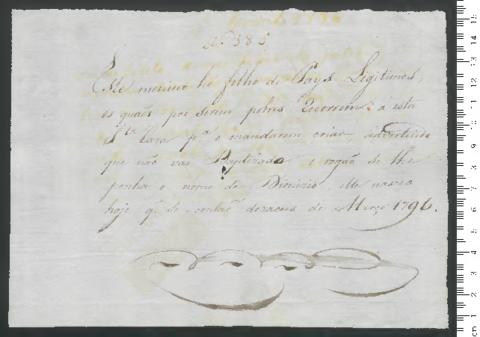 Nº 385
Este menino he filho de Pays Legitimos,
os quais por serem pobres Recorrem a esta
Sta Caza pª o mandarem criar advertindo
que não vai Baptizado e rogão se lhe
ponha o nome de Dionizio
hoje q se contaõ dezaceis de Março 1796.